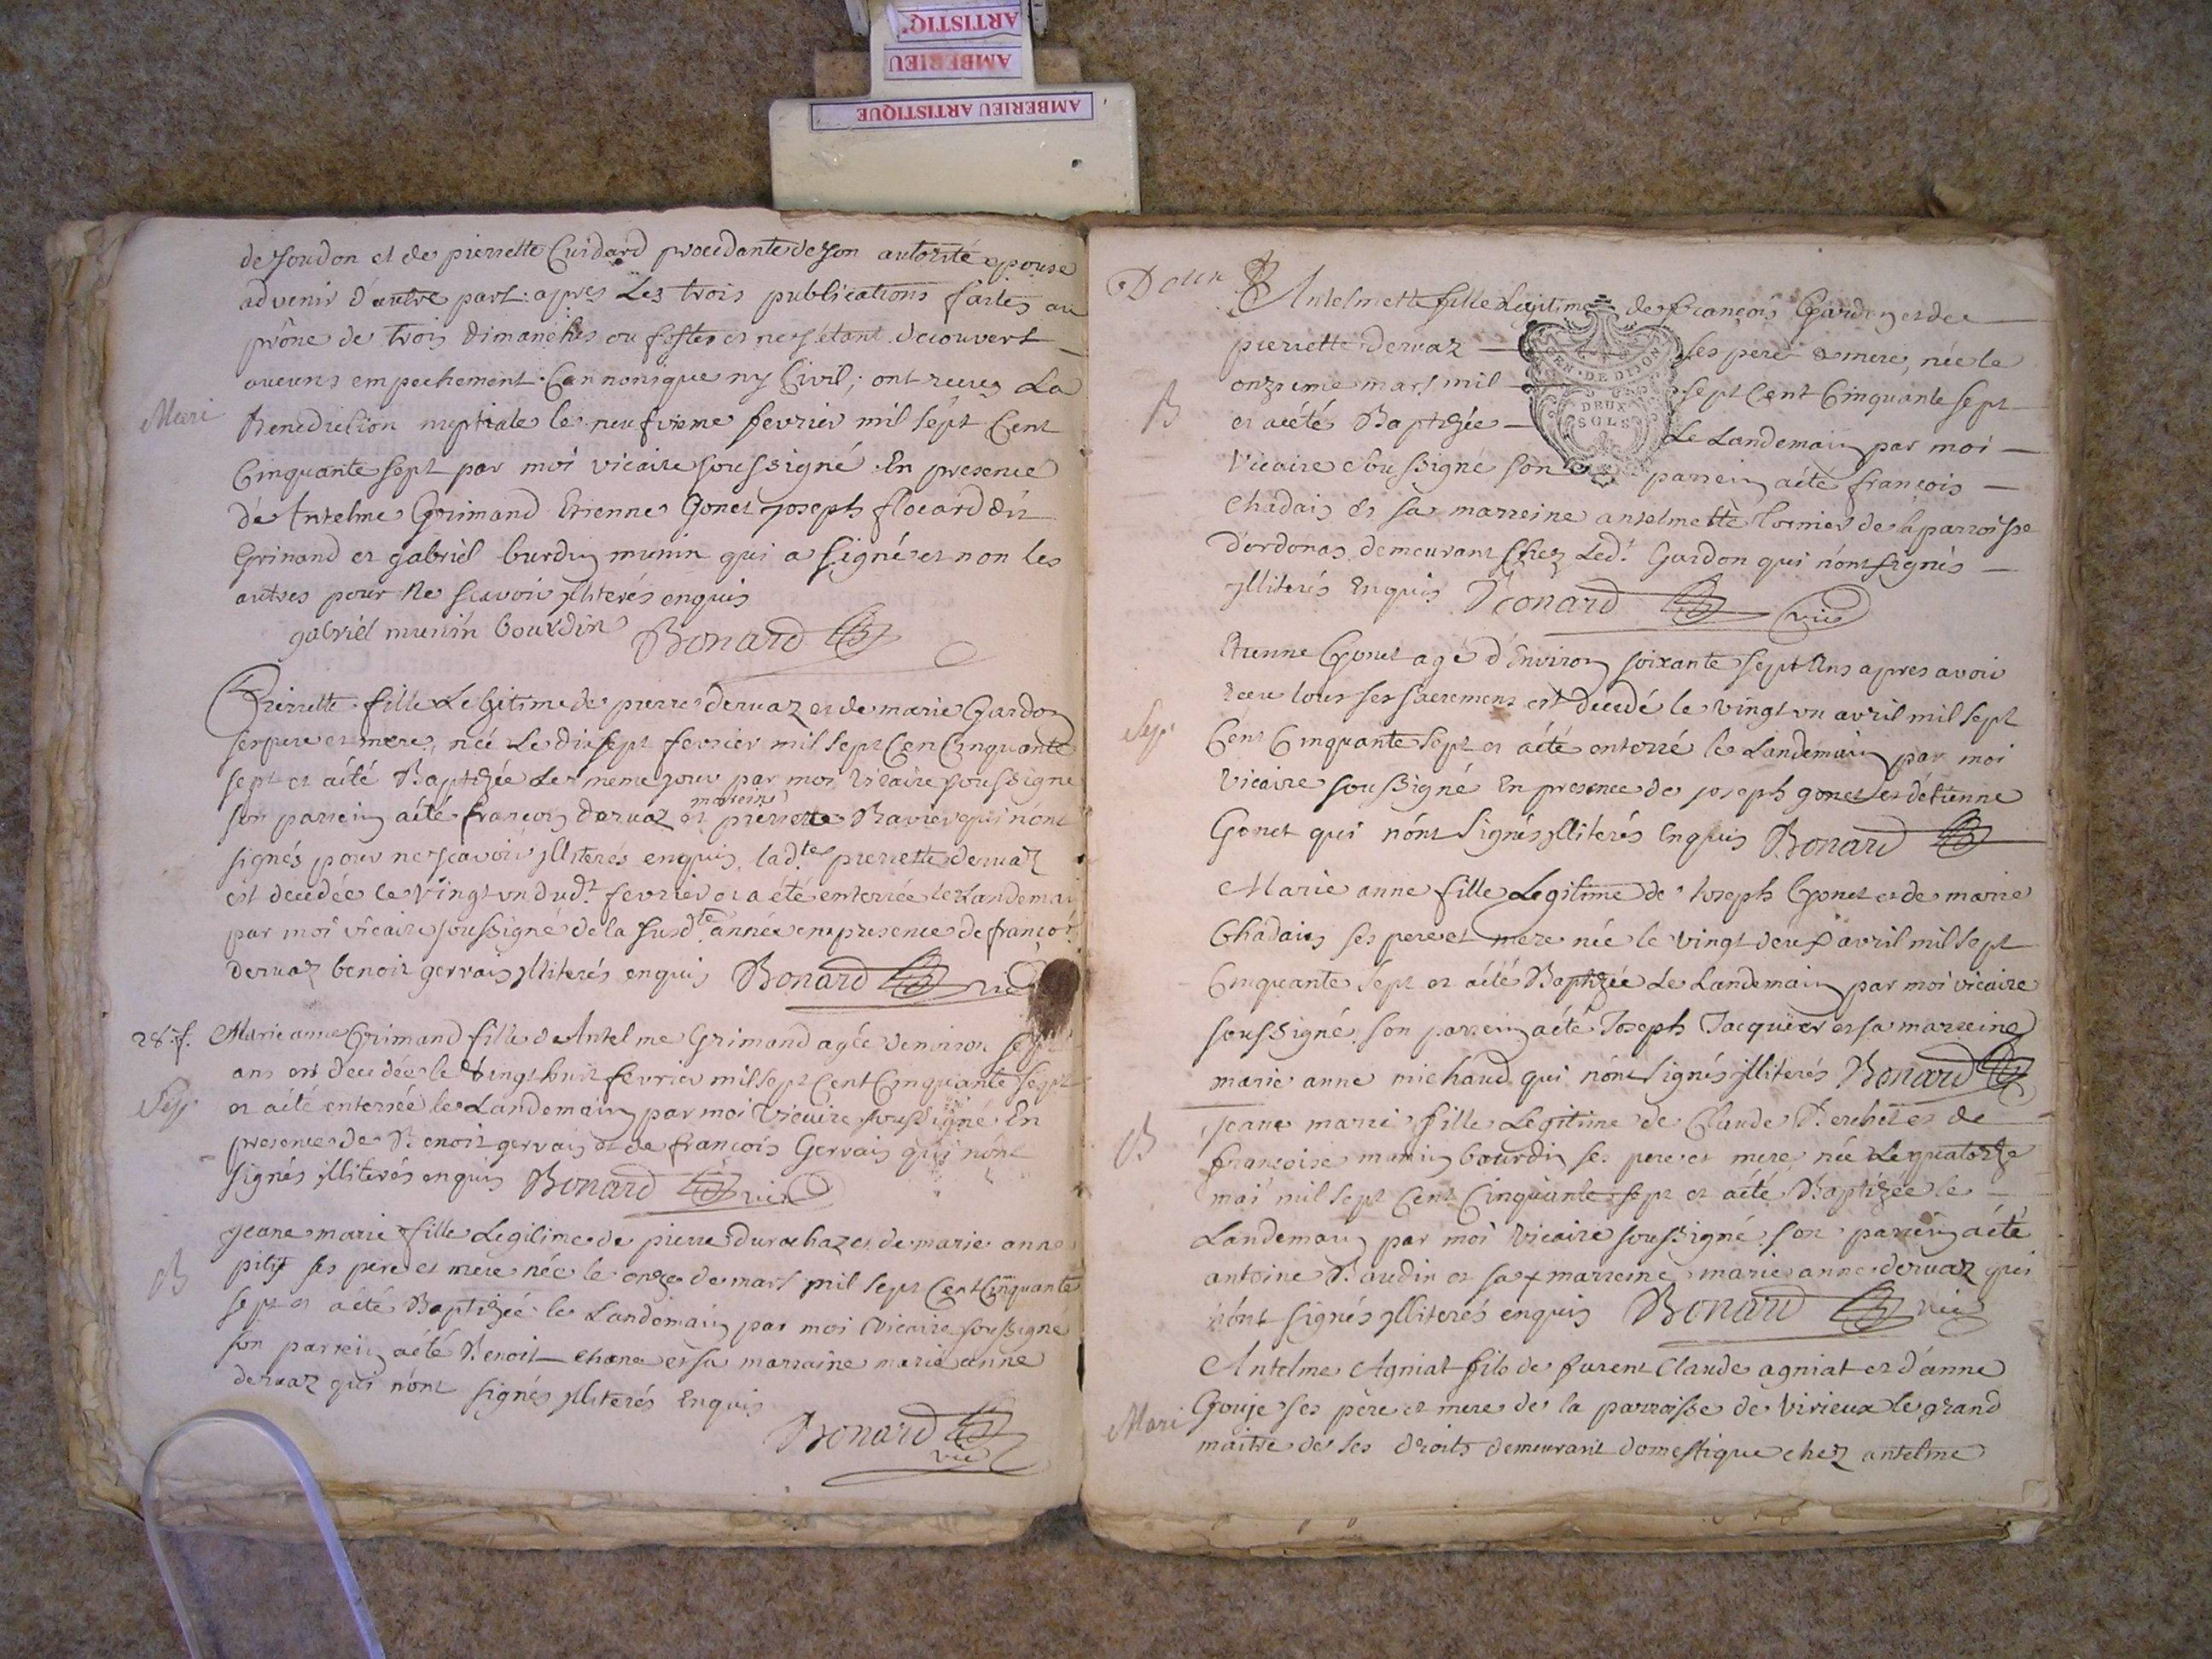 ARTISTIQ
AMBERIEU
AMBERIEU ARTISTIQUE
de soudon et de pierrette Cuidard procedante de son autorité epouse
advenir d'autre part: apres Les trois publications faites au
prône de trois dimanches ou festes et ne s'etant decouvert
aucuns empechement Cannonique ny Civil, ont recus La
Mari
Benediction nuptiale le neufvieme fevrier mil sept Cent
Cinquante sept par moi vicaire soussigné En presence
de Antelme Grimand Etienne Gonet joseph flocard dit
Grinand et gabriel burdin munin qui a signé et non les
autres pour ne scavoir illiterés enquis
gabriel munin bourdin Bonard
Pierrette fille Legitime de pierre dervaz et de marie Gardon
ses pere et mere, née Le dix sept fevrier mil sept Cen Cinquante
sept et aété Baptizée Le meme jour par moi Vicaire soussigne
mareine
son parrein aété françois dervaz et pierrette Ravier qui nont
signés pour ne scavoir illiterés enquis lad.te pierrette dervaz
est decedée le vingt un dud.t fevrier et a été enterrée le Landemain
par moi vicaire soussigné de la susd.te année en presence de françois
dervaz benoit gervais illiterés enquis Bonard vic
28 f. Marie anne Grimand fille de Antelme Grimand agée d'environ sept
ans est decedée le vingt huit fevrier mil sept Cent Cinquante sept
Sep.
et aété enterrée le Landemain par moi Vicaire soussigné En
presence de Benoit gervais et de françois Gervais qui nont
signés illiterés enquis Bonard vic
jeane marie fille Legitime de pierre durochaz et de marie anne
B
pitif ses pere et mere née le onze de mars mil sept Cent Cinquante
sept et aété Baptizée le Landemain par moi Vicaire soussigne
son parrein aété Benoit chane et sa marraine marie anne
dervaz qui n'ont signés illiterés Enquis
Bonard
vic
Antelmette fille Legitime de françois Gardon et de
pierrette dervaz ses pere & mere, née le
onzieme mars mil sept Cent Cinquante sept
B
et aété Baptizée Le Landemain par moi
GEN · DE DIJON
DEUX
SOLS
Vicaire soussigné son parrein aété françois
Chadais et sa marreine antelmette tornier de la parroisse
d'ordonas demeurant chez Led.t Gardon qui n'ont signés
illiterés Enquis Bonard vic
Etienne Gonet agé d'Environ soixante sept Ans apres avoir
recu tous ses sacremens est decedé le vingt un avril mil sept
Sep.
Cent Cinquante sept et aété enterré le Landemain par moi
Vicaire soussigné En presence de joseph gonet et d'etienne
Gonet qui n'ont signés illiterés Enquis Bonard
Marie anne fille Legitime de Joseph Gonet et de marie
Chadais ses pere et mere née le vingt deux avril mil sept
Cinquante sept et aété Baptizée Le Landemain par moi vicaire
soussigné son parrein aété Joseph Jacquier et sa marreine
marie anne michaud qui n'ont signés illiterés Bonard
jeane marie fille Legitime de Claude Berchet et de
B
françoise munin bourdin ses pere et mere née Le quatorze
mai mil sept Cent Cinquante sept et aété Baptizée le
Landemain par moi Vicaire soussigné son parrein aété
antoine Baudin et sa marreine marie anne dervaz qui
n'ont signés illiterés enquis Bonard vic
Antelme Agniat fils de furent Claude agniat et d'anne
Mari
Gouje ses père et mere de la parroisse de Virieux le grand
maitre de ses droits demeurant domestique chez antelme